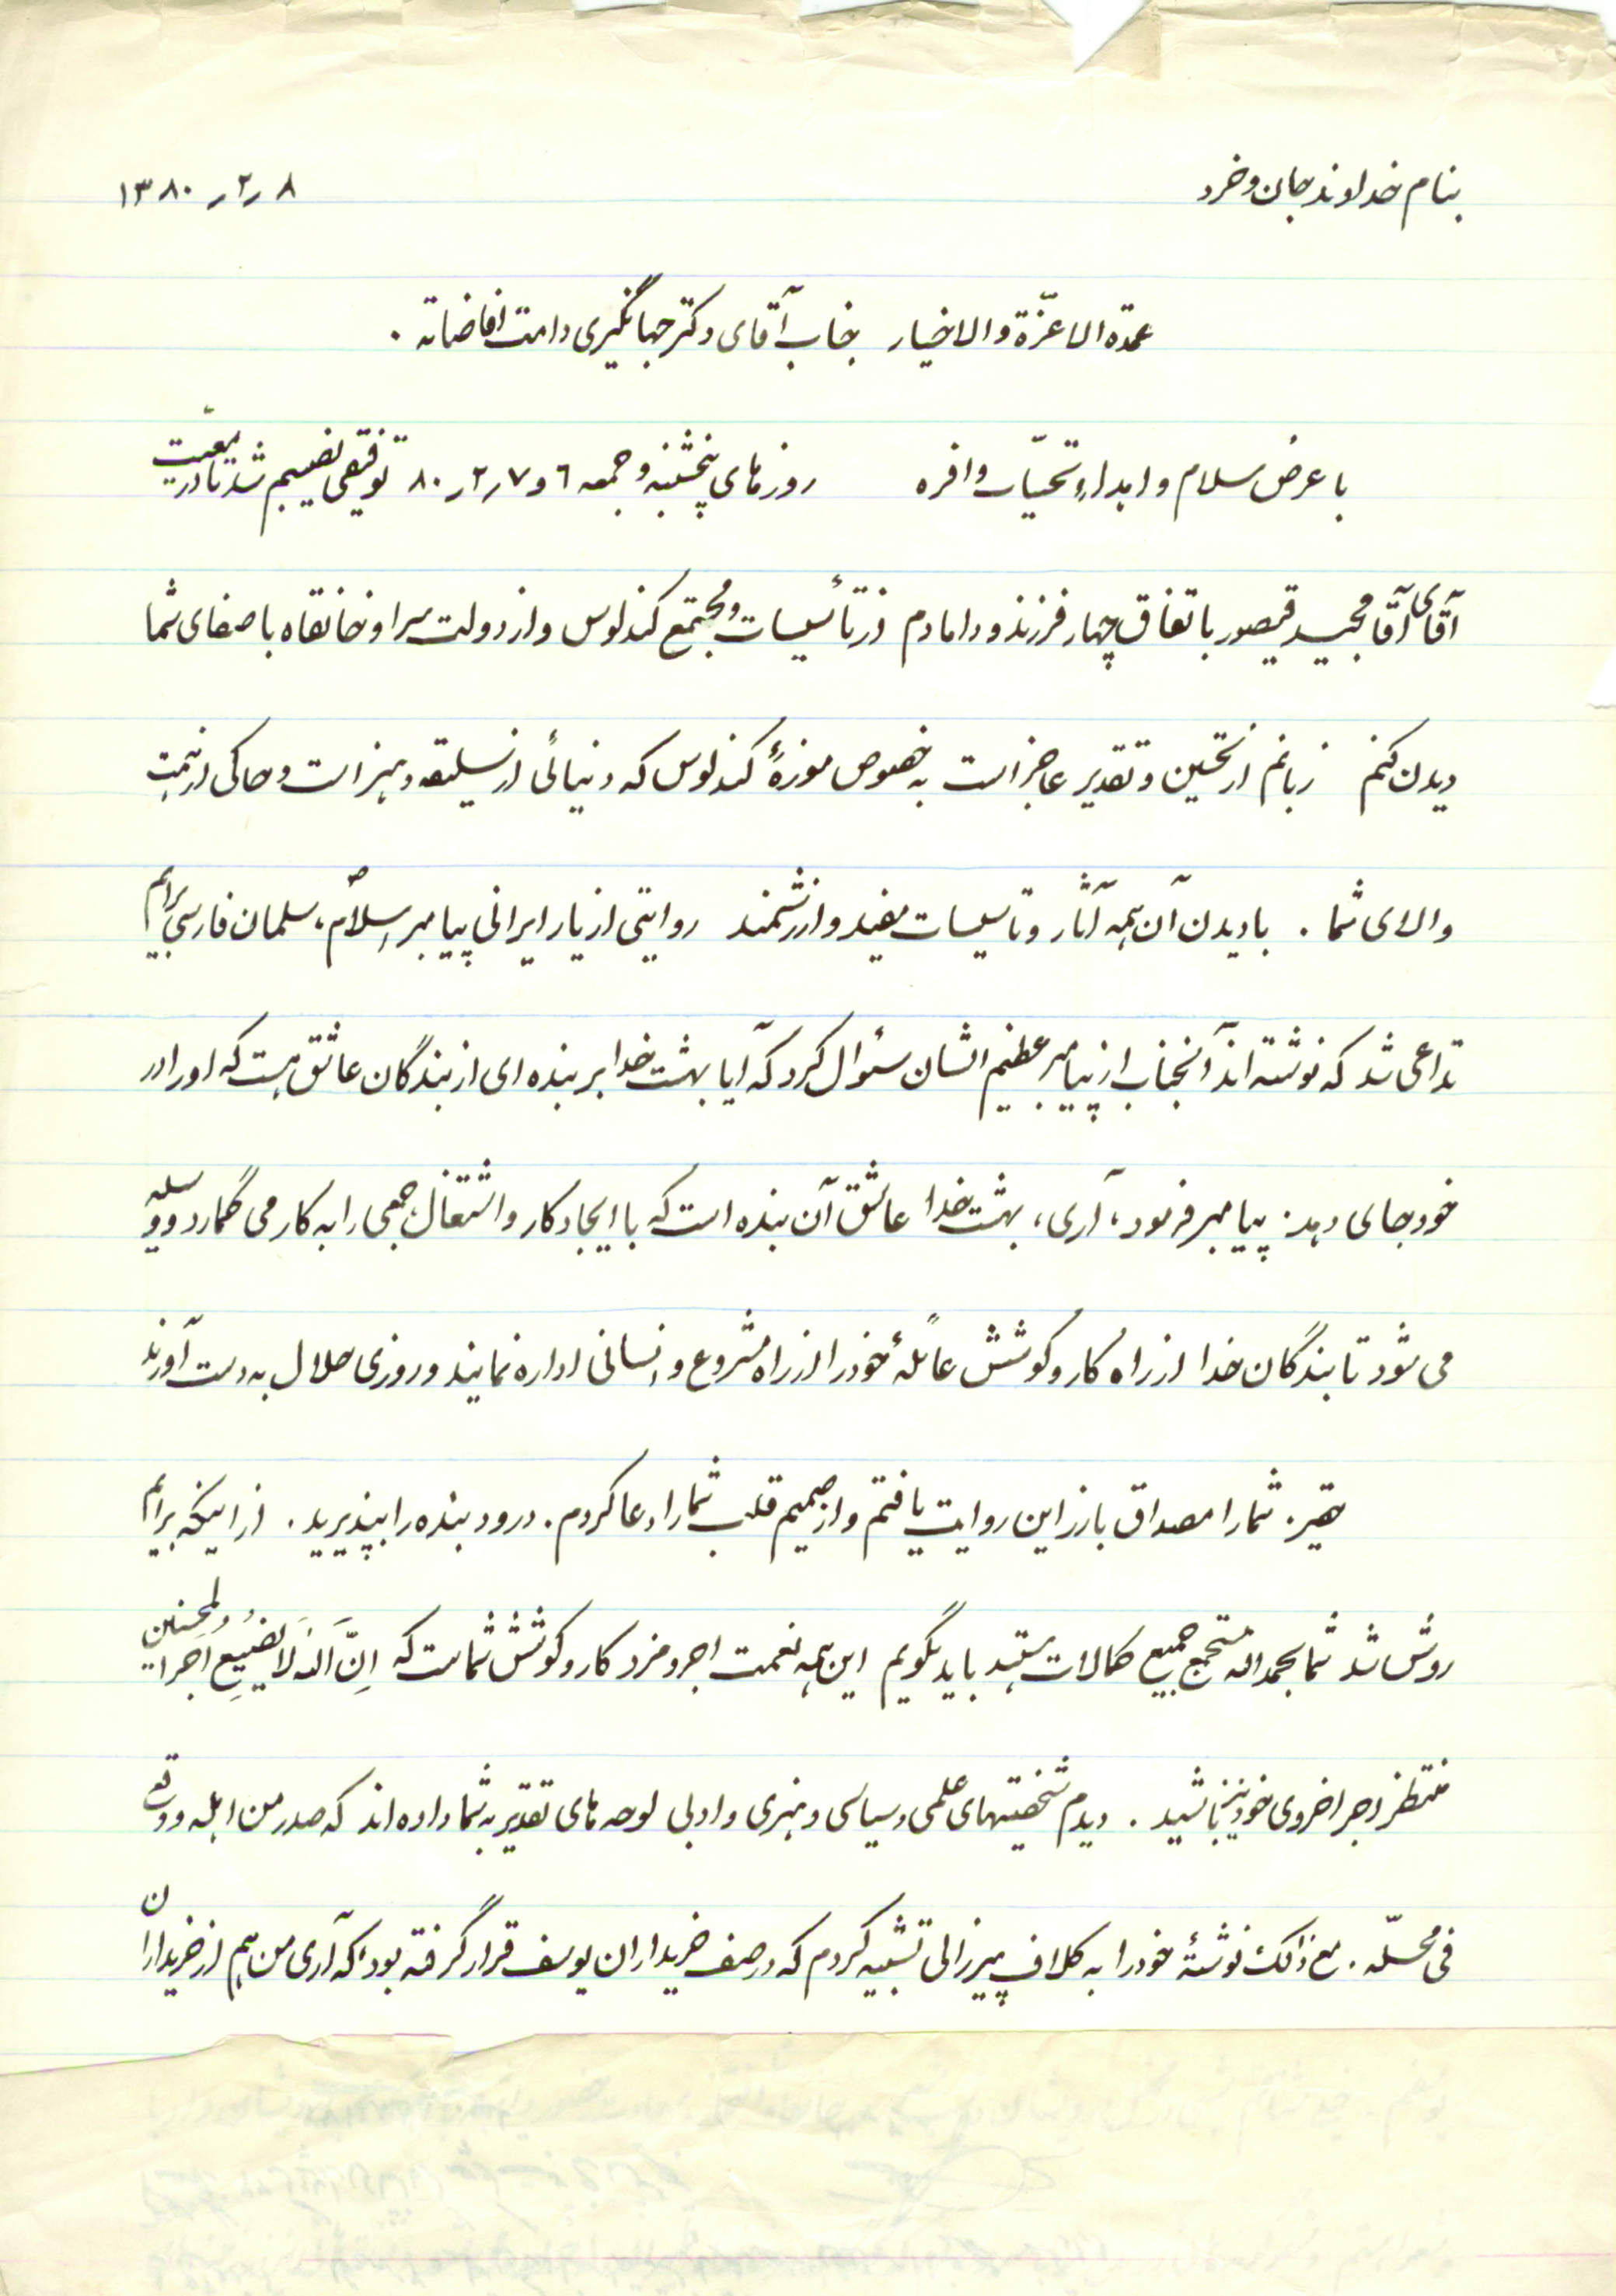 بنام خداوند جان و خرد
۸ر۲ر۱۳۸۰
عمدة الاعزّة والاخیار جناب آقای دکتر جهانگیری دامت افاضاته .
با عرض سلام و اهداءِ تحیّات وافره روزهای پنجشنبه و جمعه ۶ و ۷ر۲ر۸۰ توفیقی نصیبم شد تا در معیّت
آقای آقا مجید قیصور باتفاق چهار فرزند و دامادم از تأسیسات و مجتمع کندلوس و از دولت سرا و خانقاه باصفای شما
دیدن کنم زبانم از تحسین و تقدیر عاجز است به خصوص موزهٔ کندلوس که دنیائی از سلیقه و هنر است و حاکی از همت
والای شما . با دیدن آن همه آثار و تاسیسات مفید و ارزشمند روایتی از یار ایرانی پیامبر اسلام ص، سلمان فارسی برایم
تداعی شد که نوشته اند آنجناب از پیامبر عظیم الشان سئوال کرد که آیا بهشت خدا بر بنده ای از بندگان عاشق هست که او را در
خود جای دهد. پیامبر فرمود، آری، بهشت خدا عاشق آن بنده است که با ایجاد کار و اشتغال، جمعی را به کار می گمارد و وسیله
می شود تا بندگان خدا از راه کار و کوشش عائلهٔ خود را از راه مشروع و انسانی اداره نمایند و روزی حلال به دست آورند
حقیر. شما را مصداق بارز این روایت یافتم و از صمیم قلب شما را دعا کردم . درود بنده را بپذیرید . از اینکه برایم
روشن شد شما بحمدالله مستجمع جمیع کمالات هستید باید بگویم این همه نعمت اجر و مزد کار و کوشش شماست که اِنَّ اللهَ لَا یُضیعُ اَجرَ المحسنین
منتظر اجر اخروی خود نیز باشید . دیدم شخصیتهای علمی و سیاسی و هنری و ادبی لوحه های تقدیر به شما داده اند که صدر من اهله و وقع
فی محلّه . مع ذالک نوشتهٔ خود را به کلاف پیرزالی تشبیه کردم که در صف خریداران یوسف قرار گرفته بود، که آری من هم از خریداران